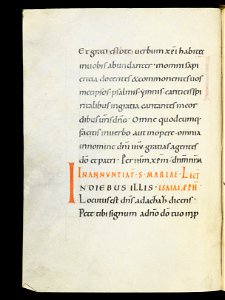 Et grati estote; verbum xpi habitet
in vobis abundanter. in omni sapi
entia docentes & commonentes vos
met ipsos psalmis ymnis canticis spi
ritalibus in gratia cantantes in cor
dibus vris dno. Omne quodcumq;
facitis in verbo aut in opere. omnia
in nomine dni ihu. gratias agentes
do et patri. Per ihm xpm dnm nrm
IN ADNUNTIAT. S. MARIAE. LEC
IN DIEBUS ILLIS. ISAIAE PPH
Locutus est dns ad achaz dicens.
Pete tibi signum a dno do tuo in p